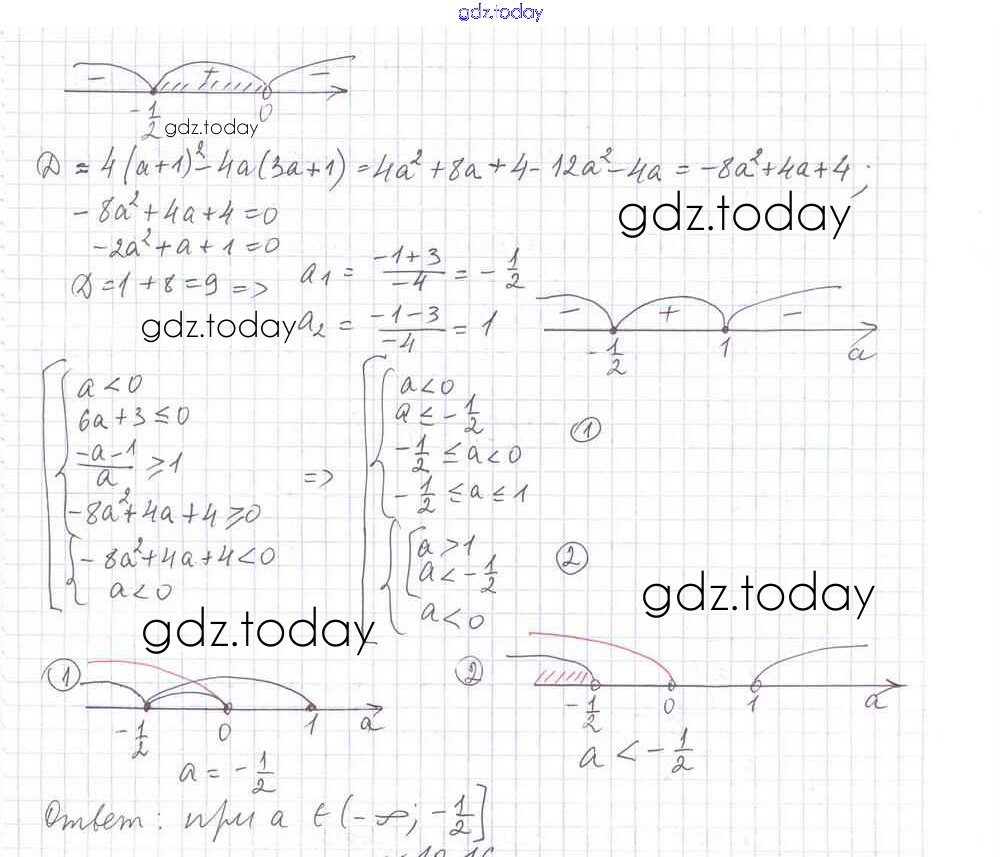 gdz.today
- + -
-1/2 0
gdz.today
D = 4(a+1)² - 4a(3a+1) = 4a² + 8a + 4 - 12a² - 4a = -8a² + 4a + 4;
-8a² + 4a + 4 = 0
gdz.today
-2a² + a + 1 = 0
D = 1 + 8 = 9 => a₁ = (-1+3)/(-4) = -1/2
gdz.today
a₂ = (-1-3)/(-4) = 1
- + -
-1/2 1 a
a < 0
6a + 3 ≤ 0
(-a-1)/a ≥ 1
-8a² + 4a + 4 ≥ 0
-8a² + 4a + 4 < 0
a < 0
=>
a < 0
a ≤ -1/2
-1/2 ≤ a < 0
-1/2 ≤ a ≤ 1
①
a > 1
a < -1/2
a < 0
②
gdz.today
gdz.today
①
-1/2 0 1 a
a = -1/2
②
-1/2 0 1 a
a < -1/2
Ответ: при a ∈ (-∞; -1/2]